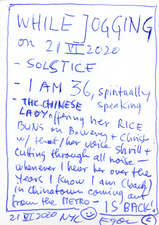 WHILE JOGGING
on 21 VI 2020
- SOLSTICE
- I AM 36, spiritually
speaking
- THE CHINESE
LADY offering her RICE
BUNS on Bowery + Christ
w/ that/her voice shrill +
cutting through all noise –
whenever I hear her over the
years I know I am (back)
in Chinatown coming out
from the METRO - IS BACK!
21 VI 2020 NYC